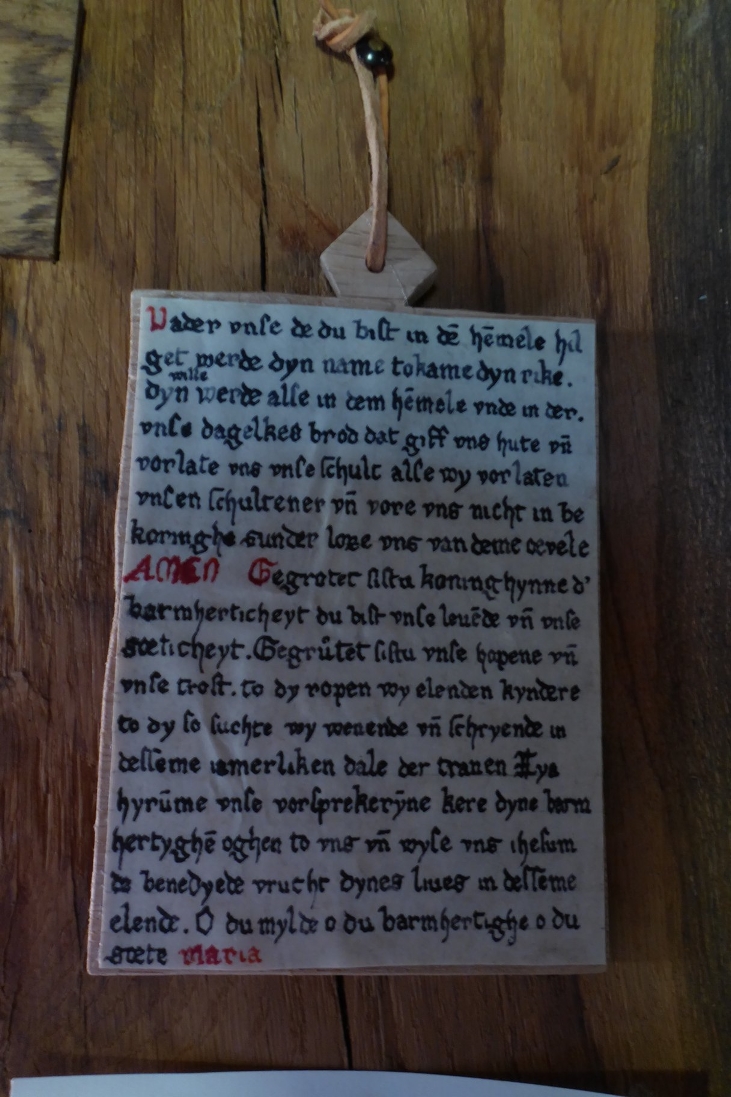 Vader vnse de du bist in dē hēmele hil
get werde dyn name tokame dyn rike.
wille
dyn werde alse in dem hēmele vnde in der.
vnse dagelkes brod dat giff vns hute vn̄
vorlate vns vnse schult alse wy vorlaten
vnsen schultener vn̄ vore vns nicht in be
koringhe sunder lose vns van deme oevele
AMEN Gegrotet sistu koninghynne d'
barmherticheyt du bist vnse leuēde vn̄ vnse
sœticheyt. Gegrůtet sistu vnse hopene vn̄
vnse trost. to dy ropen wy elenden kyndere
to dy so suchte wy wenende vn̄ schryende in
desseme iamerliken dale der tranen Eya
hyrūme vnse vorsprekerȳne kere dyne barm
hertyghē oghen to vns vn̄ wyse vns ihesum
de benedyede vrucht dynes liues in dessēme
elende. O du mylde o du barmhertighe o du
sœte maria